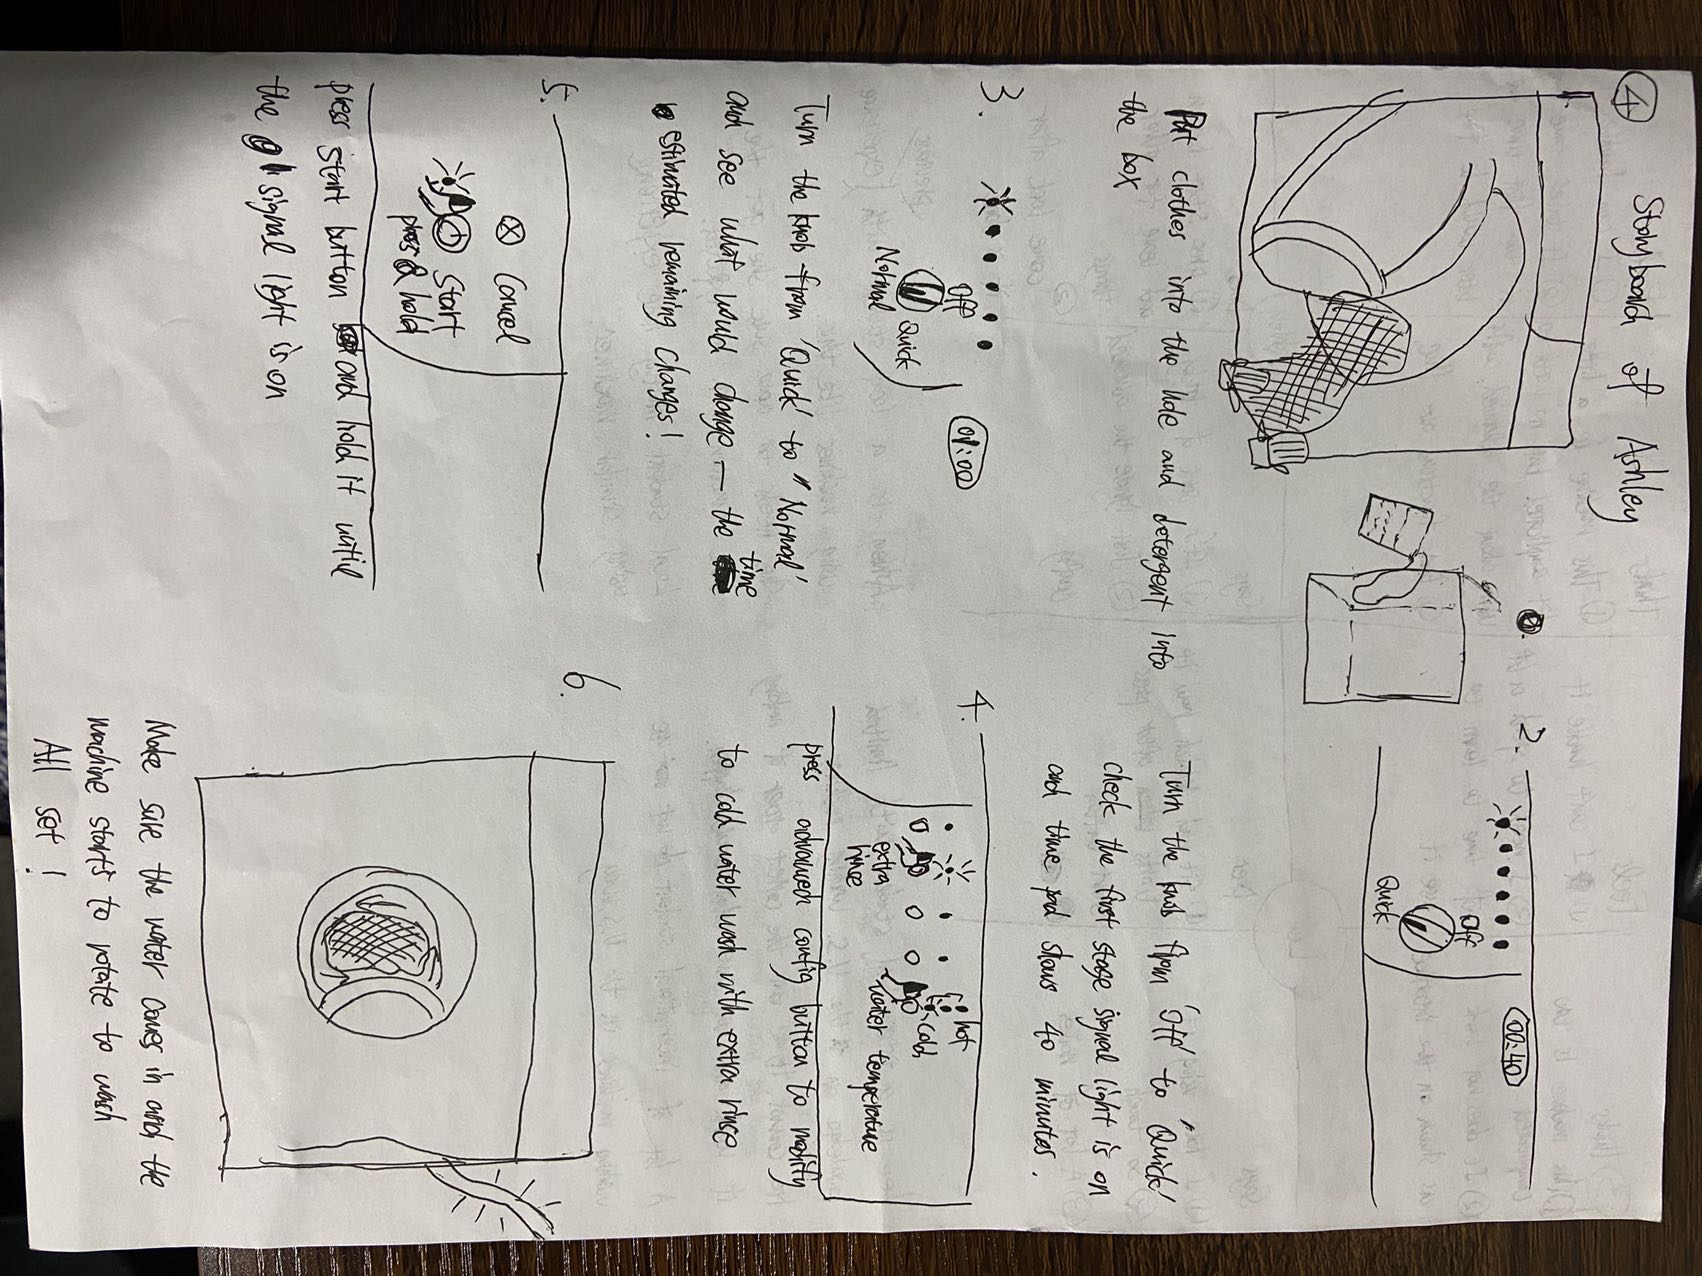 ④ Storyboard of Ashley
1.
Put clothes into the hole and detergent into
the box
2.
00:40
Off
Quick
Turn the knob from 'Off' to "Quick'
check the first stage signal light is on
and time pad shows 40 minutes.
3.
01:00
Off
Normal Quick
Turn the knob from 'Quick' to "Normal'
and see what would change — the time
estimated remaining changes!
4.
hot
cold
extra
rince
water temperature
press advanced config button to modify
to cold water wash with extra rinse
5.
Cancel
Start
press & hold
press start button and hold it until
the signal light is on
6.
Make sure the water comes in and the
machine starts to rotate to wash
All set!